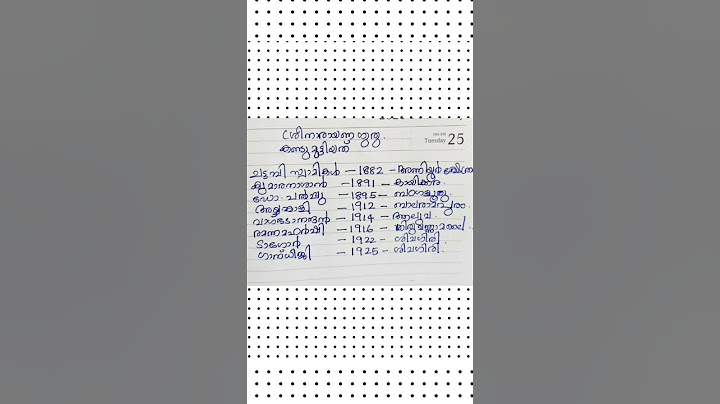 ശ്രീനാരായണ ഗുരു.
കണ്ടുമുട്ടിയത്
Tuesday 25
ചട്ടമ്പി സ്വാമികൾ - 1882 - അണിയൂർ ക്ഷേത്രം
കുമാരനാശാൻ - 1891 - കായിക്കര.
ഡോ. പൽപ്പു - 1895 - ബാംഗ്ലൂരു
അയ്യങ്കാളി - 1912 - ബാലരാമപുരം.
വാഗ്ഭടാനന്ദൻ - 1914 - ആലുവ.
രമണമഹർഷി - 1916 - തിരുവണ്ണാമലൈ
ടാഗോർ - 1922 - ശിവഗിരി
ഗാന്ധിജി - 1925 - ശിവഗിരി.